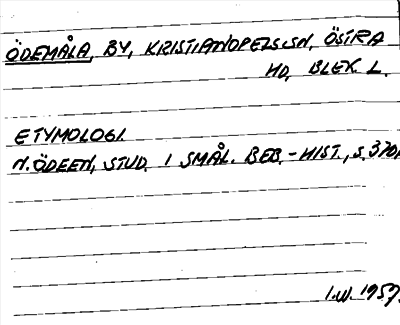 ÖDEMÅLA, BY, KRISTIANOPELS SN, ÖSTRA
HD, BLEK. L.
ETYMOLOGI.
N. ÖDEEN, STUD. I SMÅL. BEB.-HIST., S. 370.
I.W. 1957.